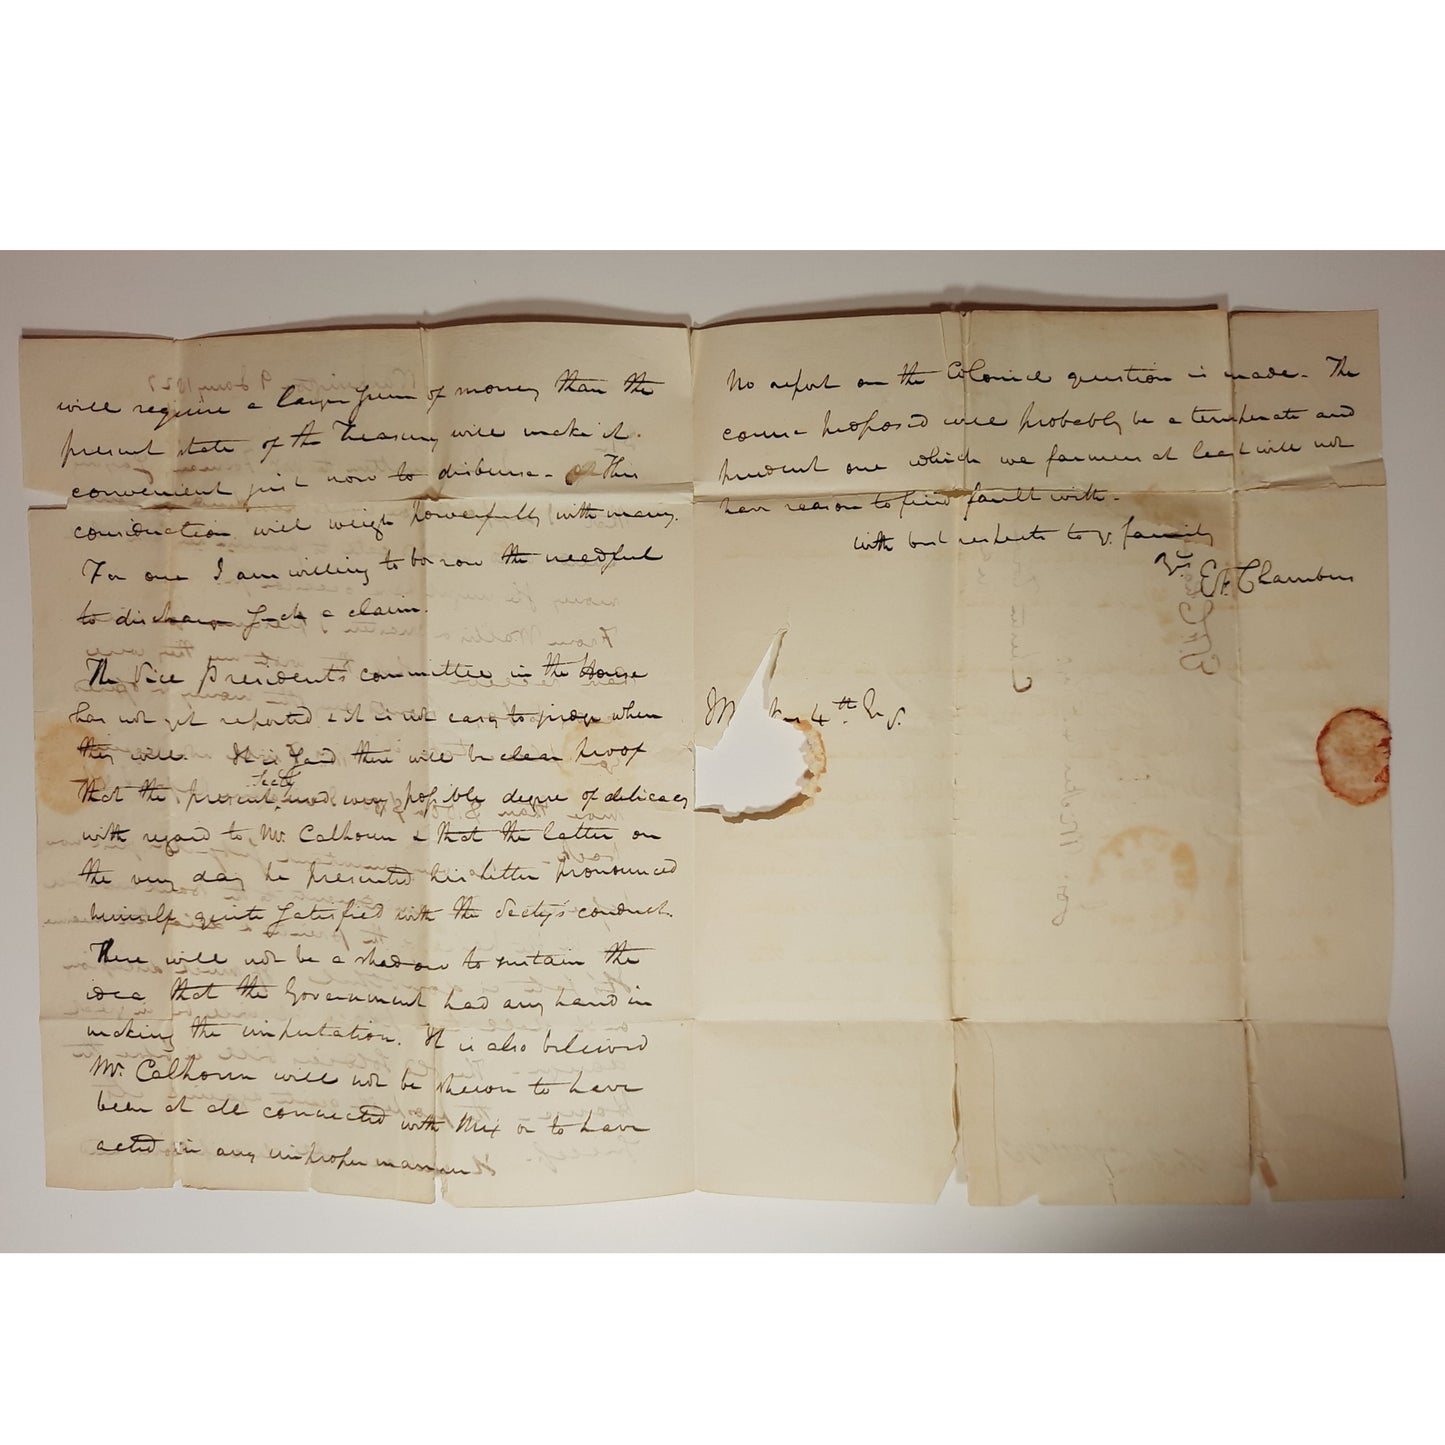 will require a larger sum of money than the
present state of the Treasury will make it
convenient just now to disburse - This
consideration will weigh powerfully with many.
For one I am willing to borrow the needful
to discharge such a claim.
The Vice President's committee in the House
has not yet reported & it is not easy to judge when
they will. It is said there will be clear proof
that the present Secty used every possible degree of delicacy
with regard to Mr. Calhoun & that the latter on
the very day he presented his letter pronounced
himself quite satisfied with the Secty's conduct.
There will not be a shadow to sustain the
idea that the Government had any hand in
making the imputation. It is also believed
Mr. Calhoun will not be shewn to have
been at all connected with Mix or to have
acted in any improper manner
No report on the Colonial question is made - The
course proposed will probably be a temperate and
prudent one which we farmers at least will not
have reason to find fault with -
with best respects to y. family
Yrs
E F Chambers
4th. Esqr.